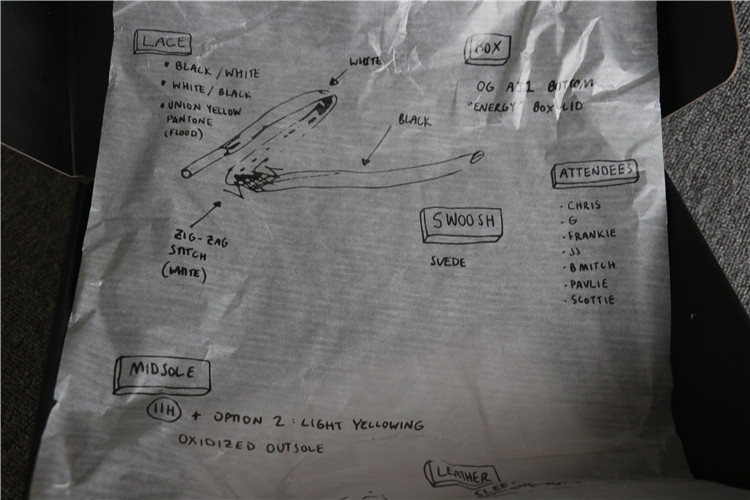 LACE
• BLACK/WHITE
• WHITE/BLACK
• UNION YELLOW
PANTONE
(FLOOD)
WHITE
BLACK
ZIG-ZAG
STITCH
(WHITE)
BOX
OG AJ1 BOTTOM
"ENERGY" BOX LID
ATTENDEES
- CHRIS
- G
- FRANKIE
- JJ
- BMITCH
- PAVLIE
- SCOTTIE
SWOOSH
SUEDE
MIDSOLE
11H + OPTION 2: LIGHT YELLOWING
OXIDIZED OUTSOLE
LEATHER